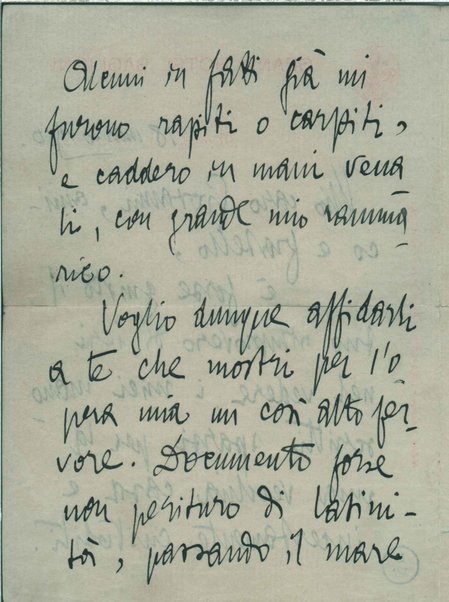 Alcuni in fatti già mi
furono rapiti o carpiti,
e caddero in mani vena
li, con grande mio ramma
rico.
Voglio dunque affidarli
a te che mostri per l'o
pera mia un così alto fer-
vore. Documento forse
non perituro di latini-
tà, passando il mare